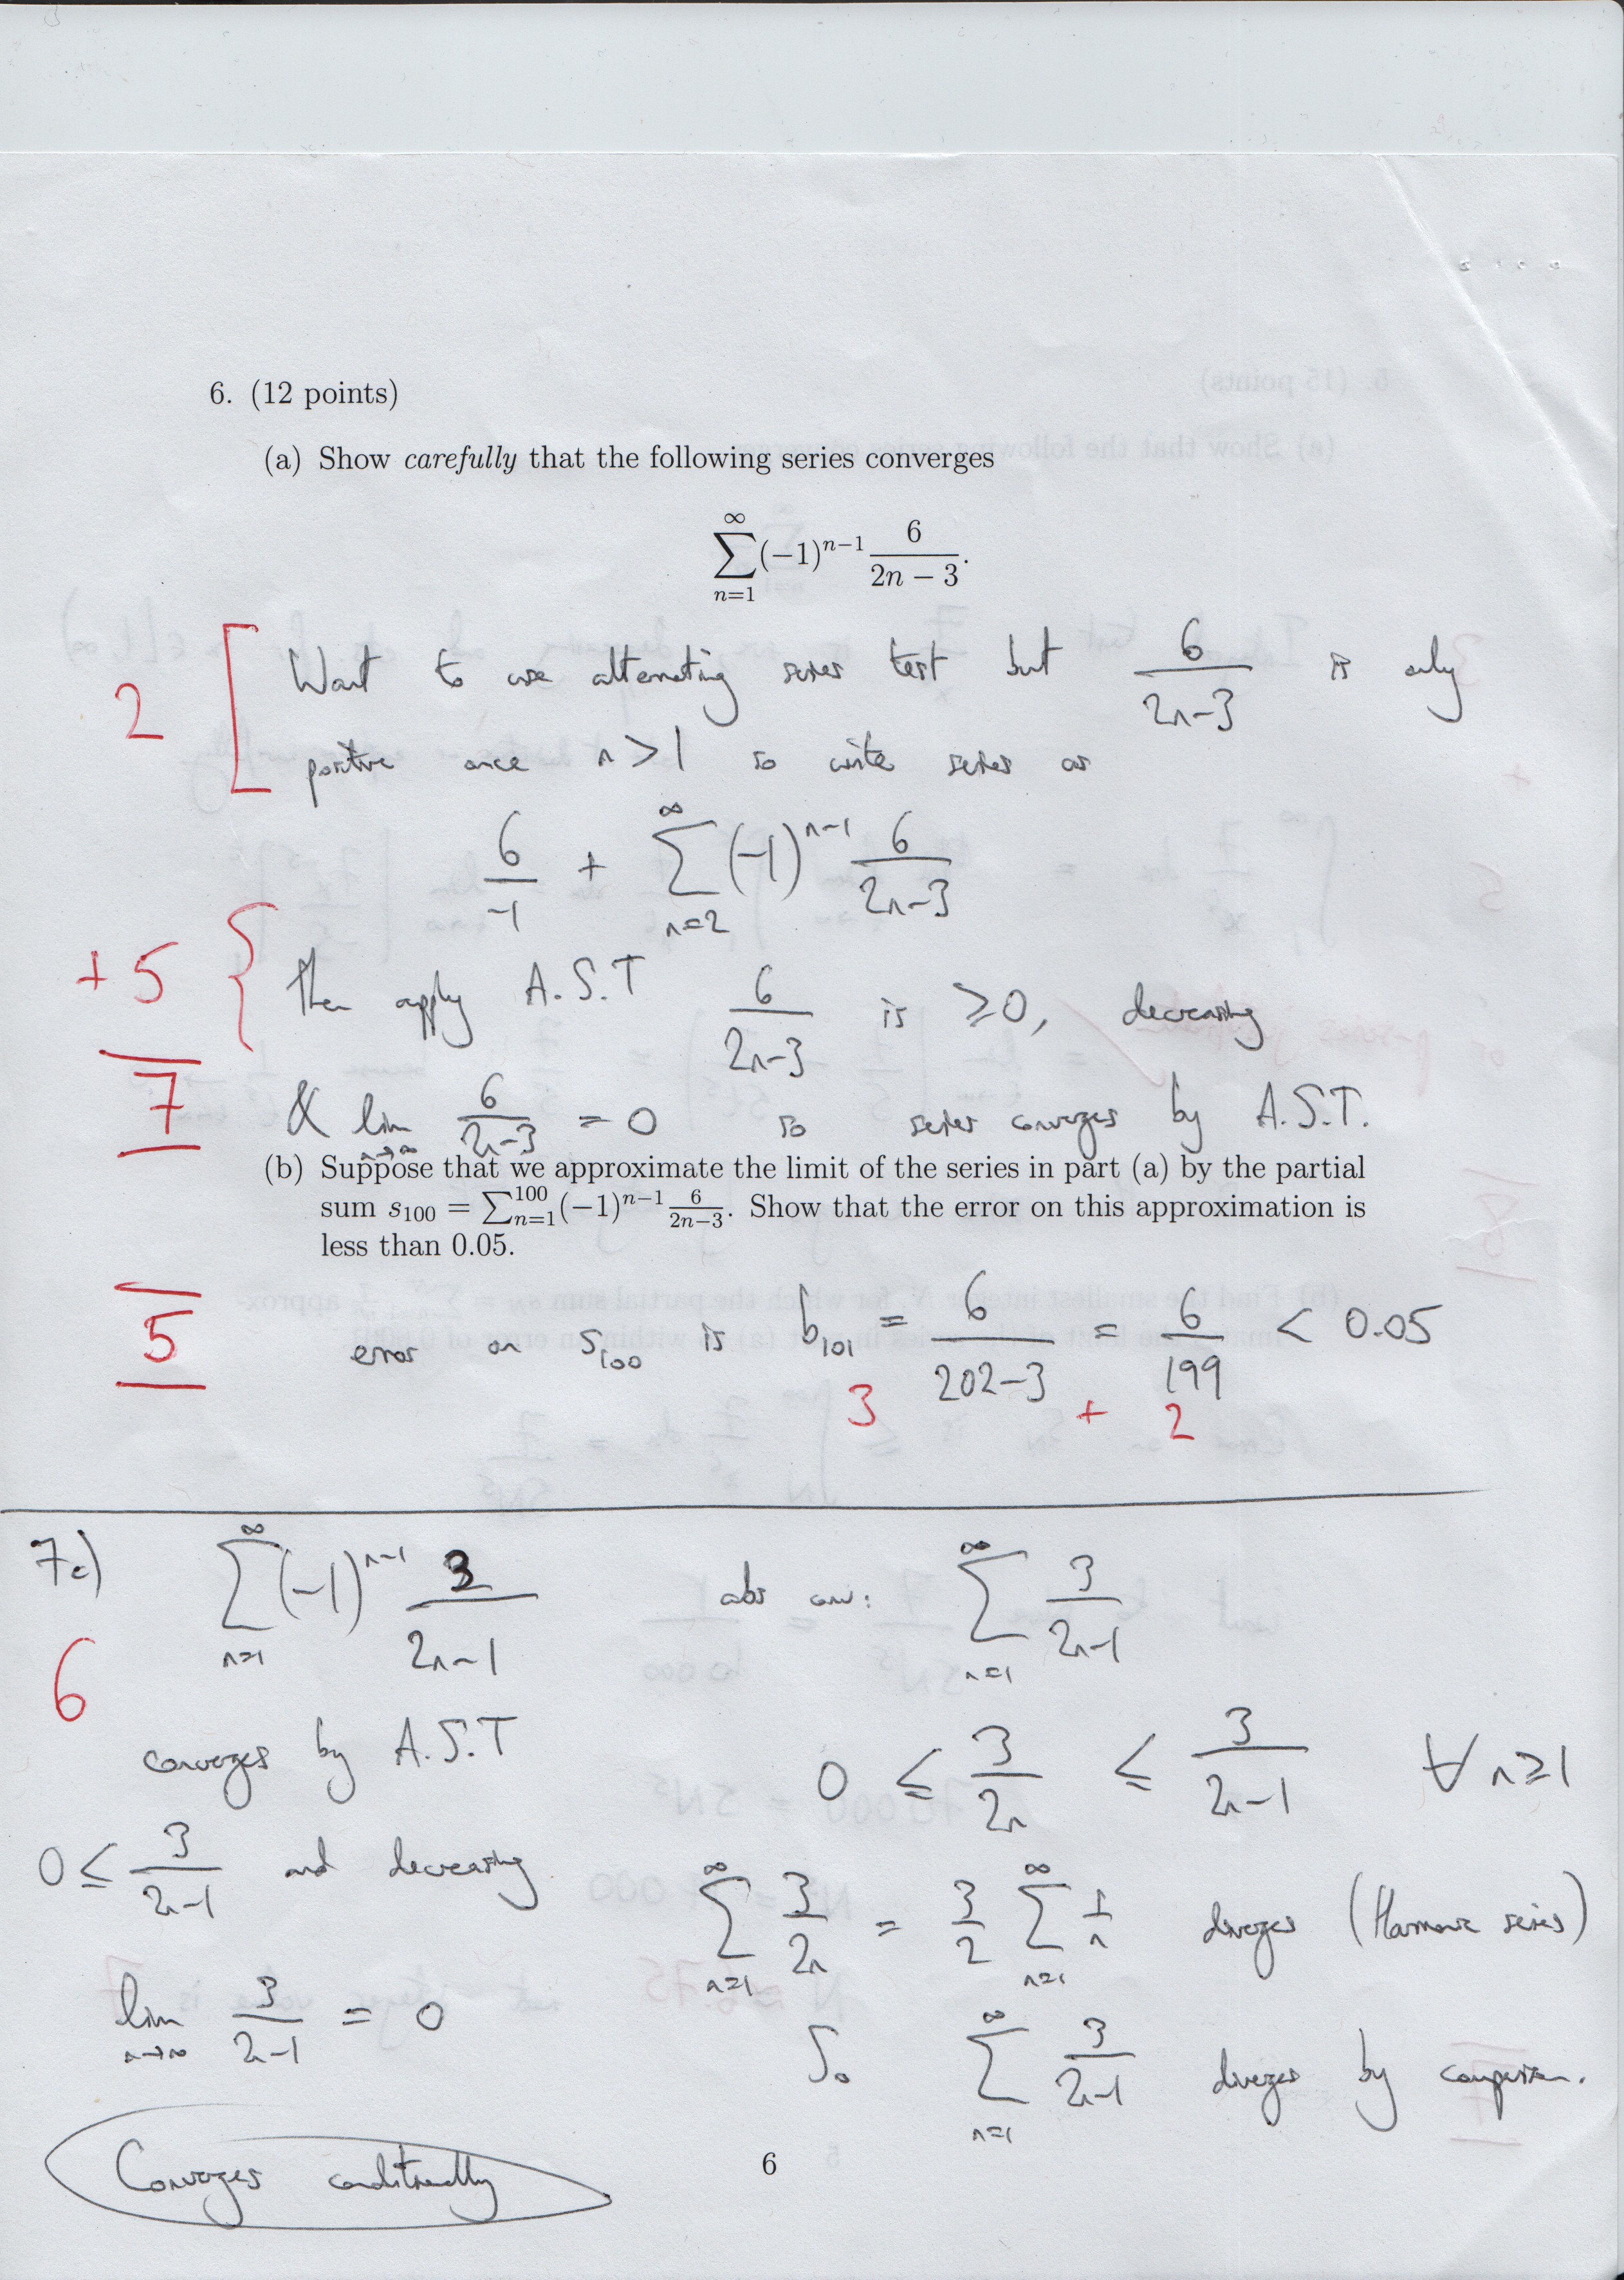 6. (12 points)
(a) Show carefully that the following series converges
∑_{n=1}^{∞} (−1)^{n−1} 6/(2n − 3).
2 [ Want to use alternating series test but 6/(2n−3) is only
positive once n > 1 so write series as
6/−1 + ∑_{n=2}^{∞} (−1)^{n−1} 6/(2n−3)
+5 { then apply A.S.T 6/(2n−3) is ≥0, decreasing
7 & lim_{n→∞} 6/(2n−3) = 0 so series converges by A.S.T.
(b) Suppose that we approximate the limit of the series in part (a) by the partial
sum s₁₀₀ = ∑_{n=1}^{100} (−1)^{n−1} 6/(2n−3). Show that the error on this approximation is
less than 0.05.
5 error on s₁₀₀ is b₁₀₁ = 6/(202−3) = 6/199 < 0.05
3 + 2
7c) ∑_{n=1}^{∞} (−1)^{n−1} 3/(2n−1)
6
converges by A.S.T
0 ≤ 3/(2n−1) and decreasing
lim_{n→∞} 3/(2n−1) = 0
Converges conditionally
abs conv: ∑_{n=1}^{∞} 3/(2n−1)
0 ≤ 3/2n ≤ 3/(2n−1) ∀ n≥1
∑_{n=1}^{∞} 3/2n = 3/2 ∑_{n=1}^{∞} 1/n diverges (Harmonic series)
So ∑_{n=1}^{∞} 3/(2n−1) diverges by comparison.
6